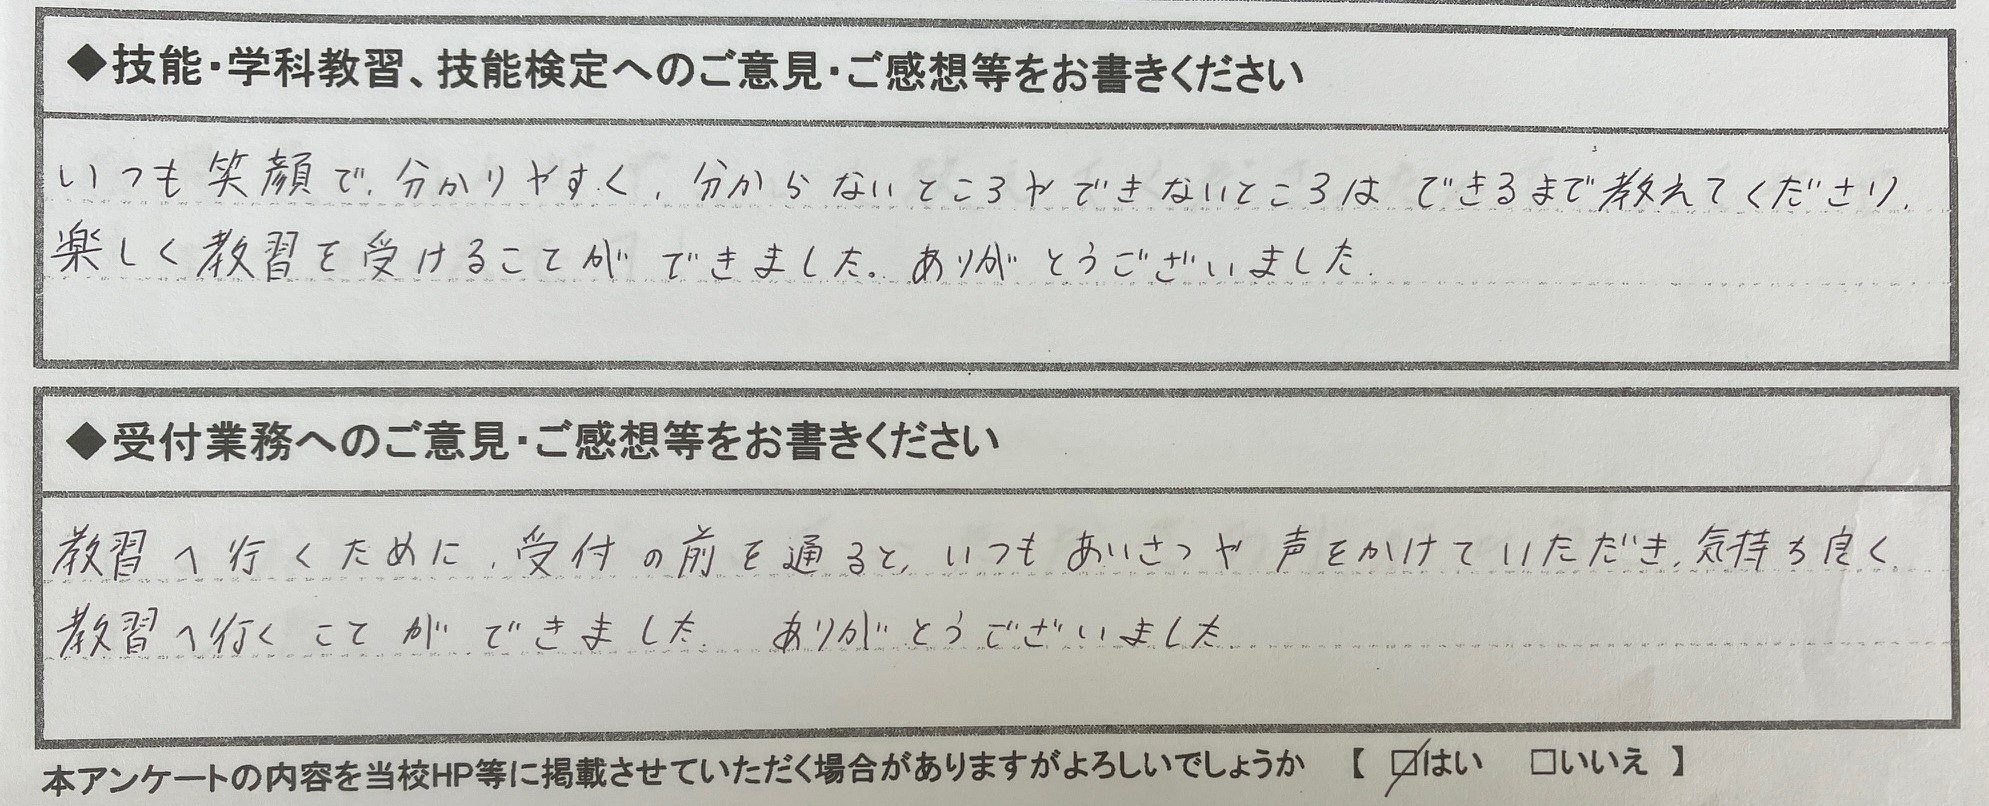 ◆技能・学科教習、技能検定へのご意見・ご感想等をお書きください
いつも笑顔で、分かりやすく、分からないところやできないところは できるまで教えてくださり、
楽しく教習を受けることが できました。ありがとうございました。
◆受付業務へのご意見・ご感想等をお書きください
教習へ行くために、受付の前を通ると、いつも あいさつや 声をかけていただき、気持ち良く
教習へ行くことが できました。 ありがとうございました。
本アンケートの内容を当校HP等に掲載させていただく場合がありますがよろしいでしょうか 【 ☑はい □いいえ 】